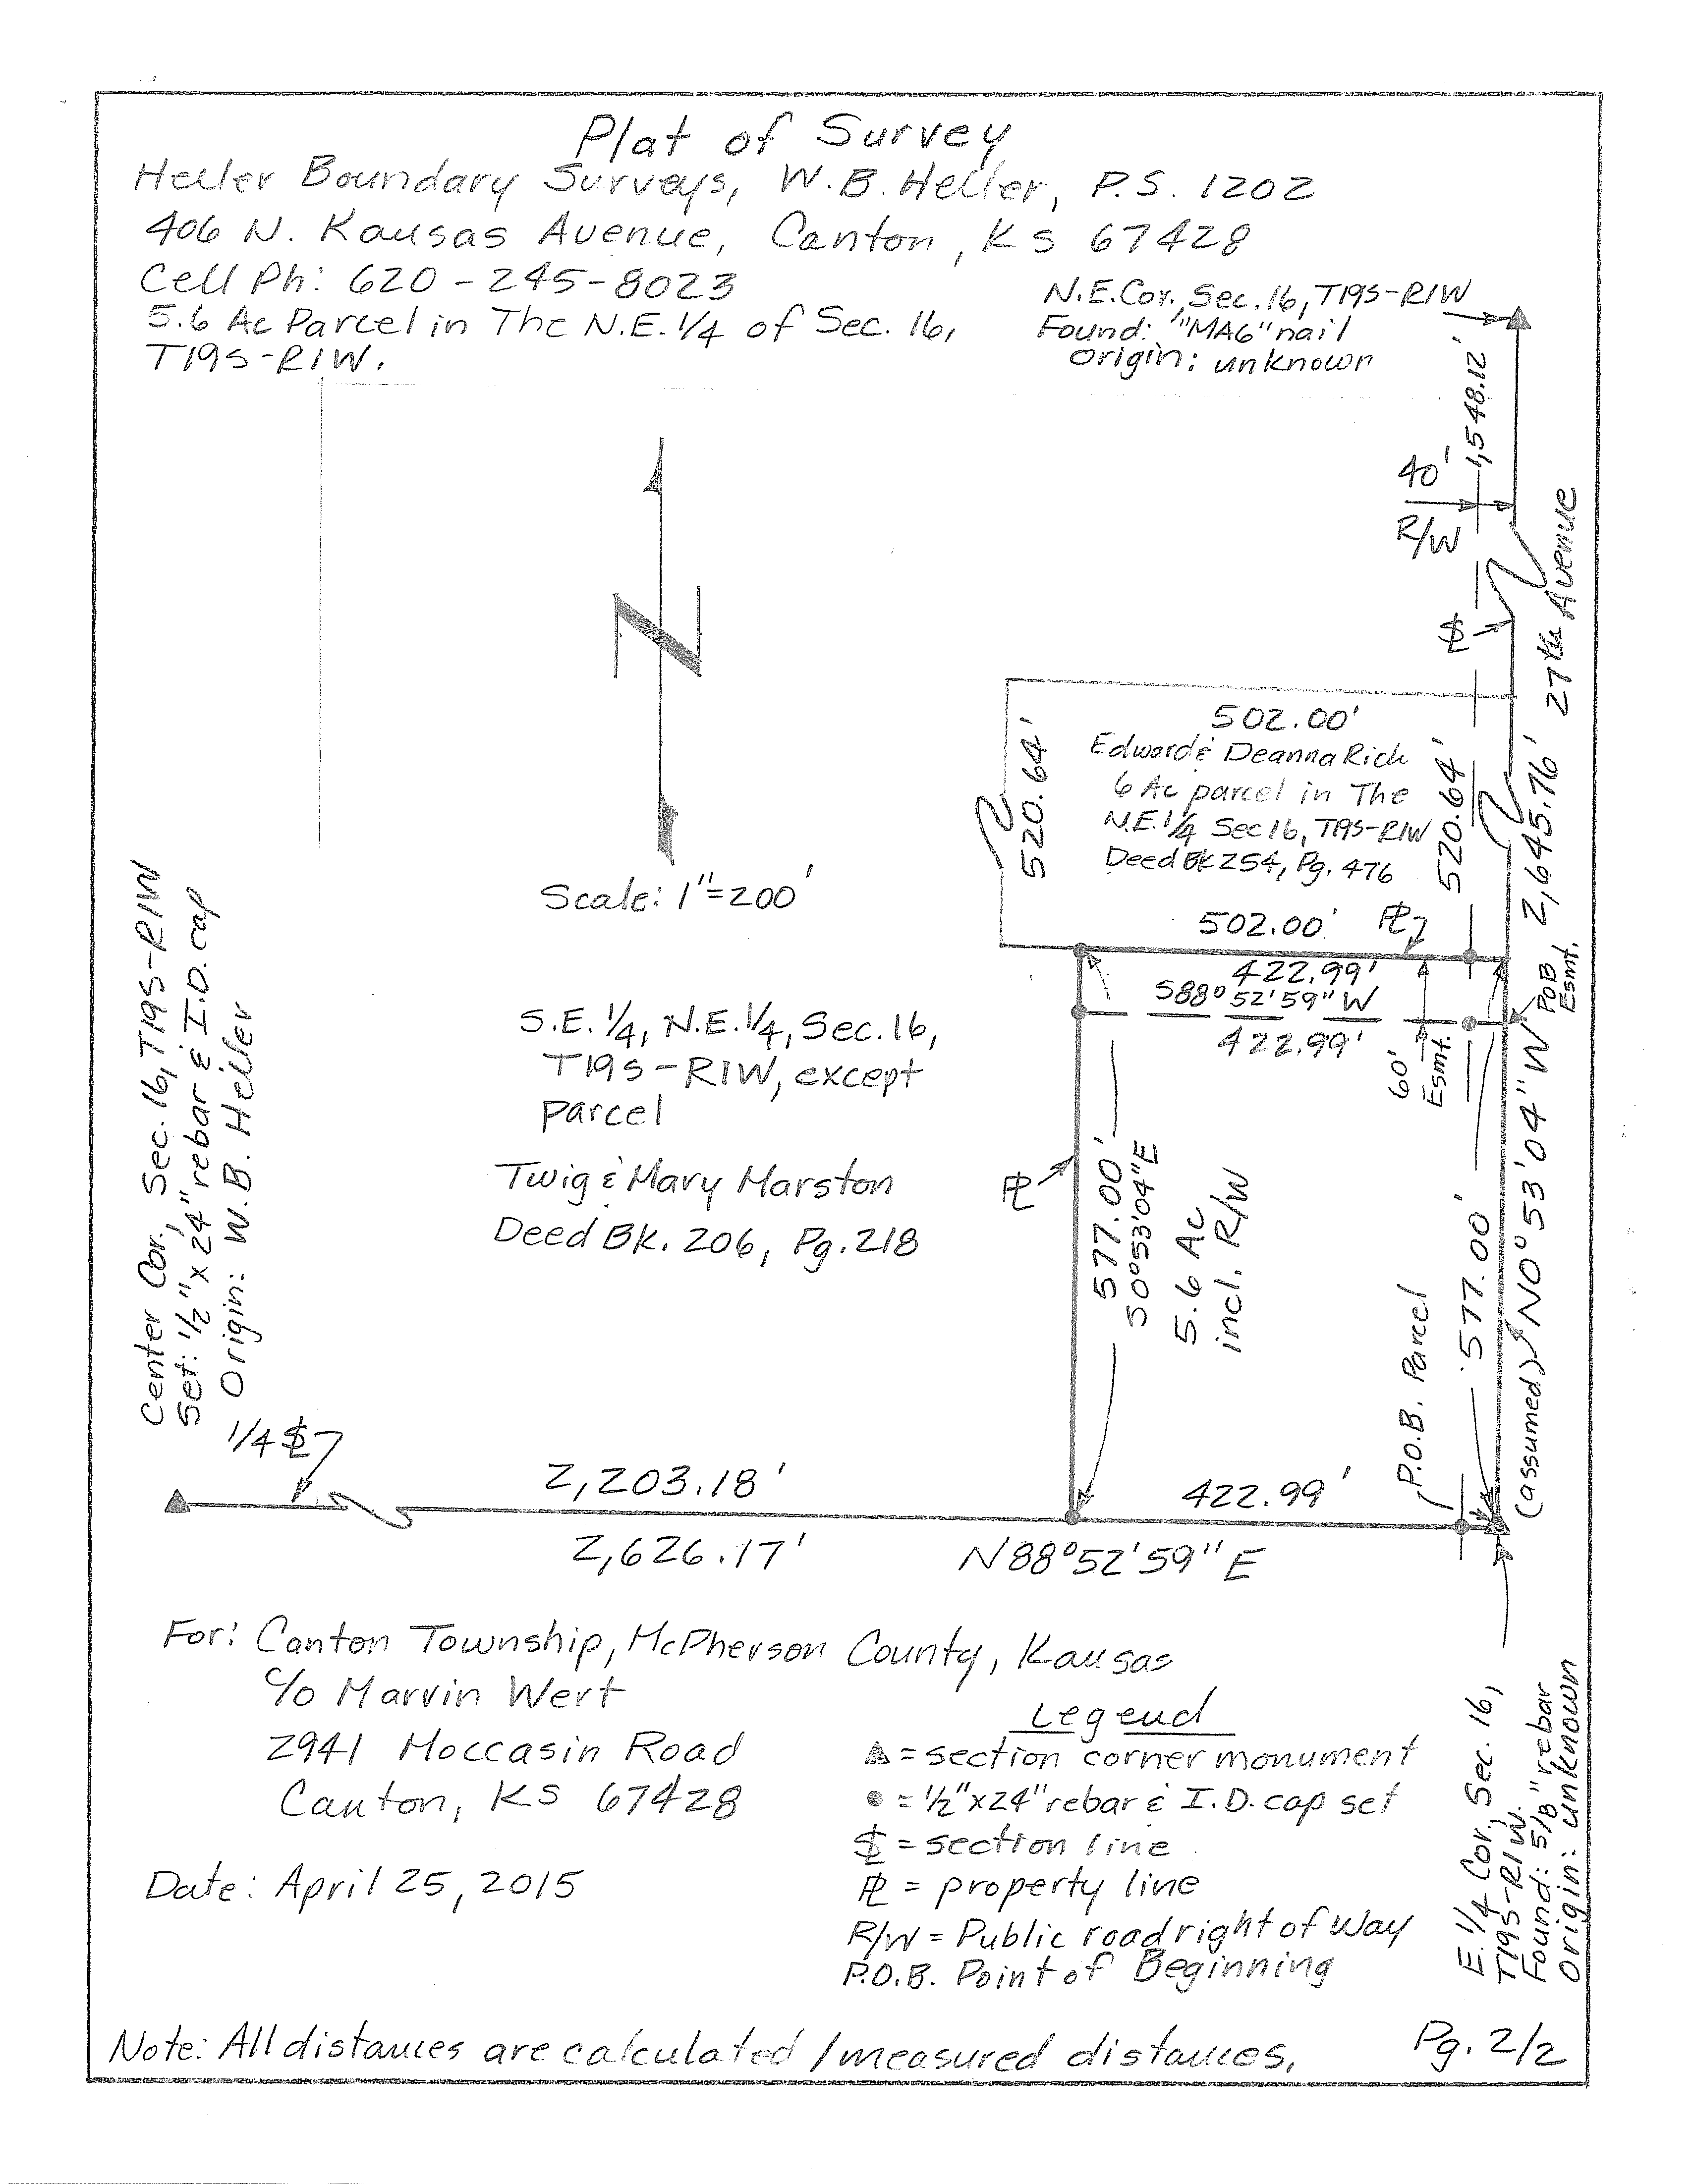 Plat of Survey
Heller Boundary Surveys, W.B. Heller, P.S. 1202
406 N. Kansas Avenue, Canton, KS 67428
Cell Ph: 620-245-8023
5.6 Ac Parcel in The N.E. 1/4 of Sec. 16,
T19S-R1W.
N.E. Cor., Sec. 16, T19S-R1W
Found: "MAG" nail
origin: unknown
1,548.12'
40'
R/W
27th Avenue
2,645.76'
502.00'
520.64'
Edward & Deanna Rich
6 Ac parcel in The
N.E. 1/4 Sec 16, T19S-R1W
Deed BK 254, Pg. 476
520.64'
502.00'
PL
422.99'
S88°52'59"W
422.99'
60'
Esmt.
POB
Esmt.
N
Scale: 1"=200'
Center Cor., Sec. 16, T19S-R1W
Set: 1/2"x24" rebar & I.D. cap
Origin: W.B. Heller
S.E. 1/4, N.E. 1/4, Sec. 16,
T19S-R1W, except
parcel
Twig & Mary Marston
Deed BK. 206, Pg. 218
PL
577.00'
S0°53'04"E
5.6 Ac
incl. R/W
P.O.B. Parcel
577.00'
(assumed) N0°53'04"W
1/4 SL
2,203.18'
422.99'
2,626.17'
N88°52'59"E
For: Canton Township, McPherson County, Kansas
c/o Marvin Wert
2941 Moccasin Road
Canton, KS 67428
Date: April 25, 2015
Legend
▲ = section corner monument
● = 1/2"x24" rebar & I.D. cap set
SL = section line
PL = property line
R/W = Public road right of Way
P.O.B. Point of Beginning
E. 1/4 Cor., Sec. 16,
T19S-R1W.
Found: 5/8" rebar
Origin: unknown
Note: All distances are calculated/measured distances.
Pg. 2/2